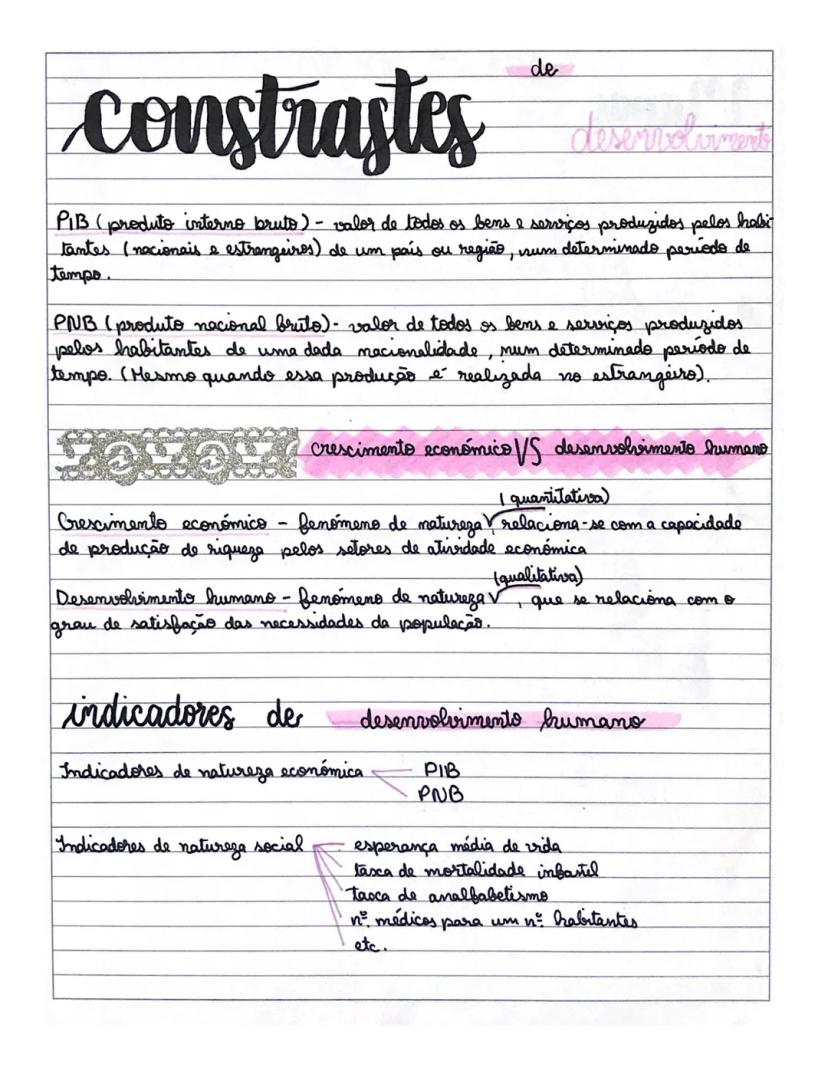 constrastes de
desenvolvimento
PIB (produto interno bruto) - valor de todos os bens e serviços produzidos pelos habi-
tantes (nacionais e estrangeiros) de um país ou região, num determinado período de
tempo.
PNB (produto nacional bruto) - valor de todos os bens e serviços produzidos
pelos habitantes de uma dada nacionalidade, num determinado período de
tempo. (Mesmo quando essa produção é realizada no estrangeiro).
crescimento económico VS desenvolvimento humano
(quantitativa)
Crescimento económico - fenómeno de natureza relaciona-se com a capacidade
de produção de riqueza pelos setores de atividade económica
(qualitativa)
Desenvolvimento humano - fenómeno de natureza , que se relaciona com o
grau de satisfação das necessidades da população.
indicadores de desenvolvimento humano
Indicadores de natureza económica PIB
PNB
Indicadores de natureza social esperança média de vida
taxa de mortalidade infantil
taxa de analfabetismo
nº médicos para um nº habitantes
etc.